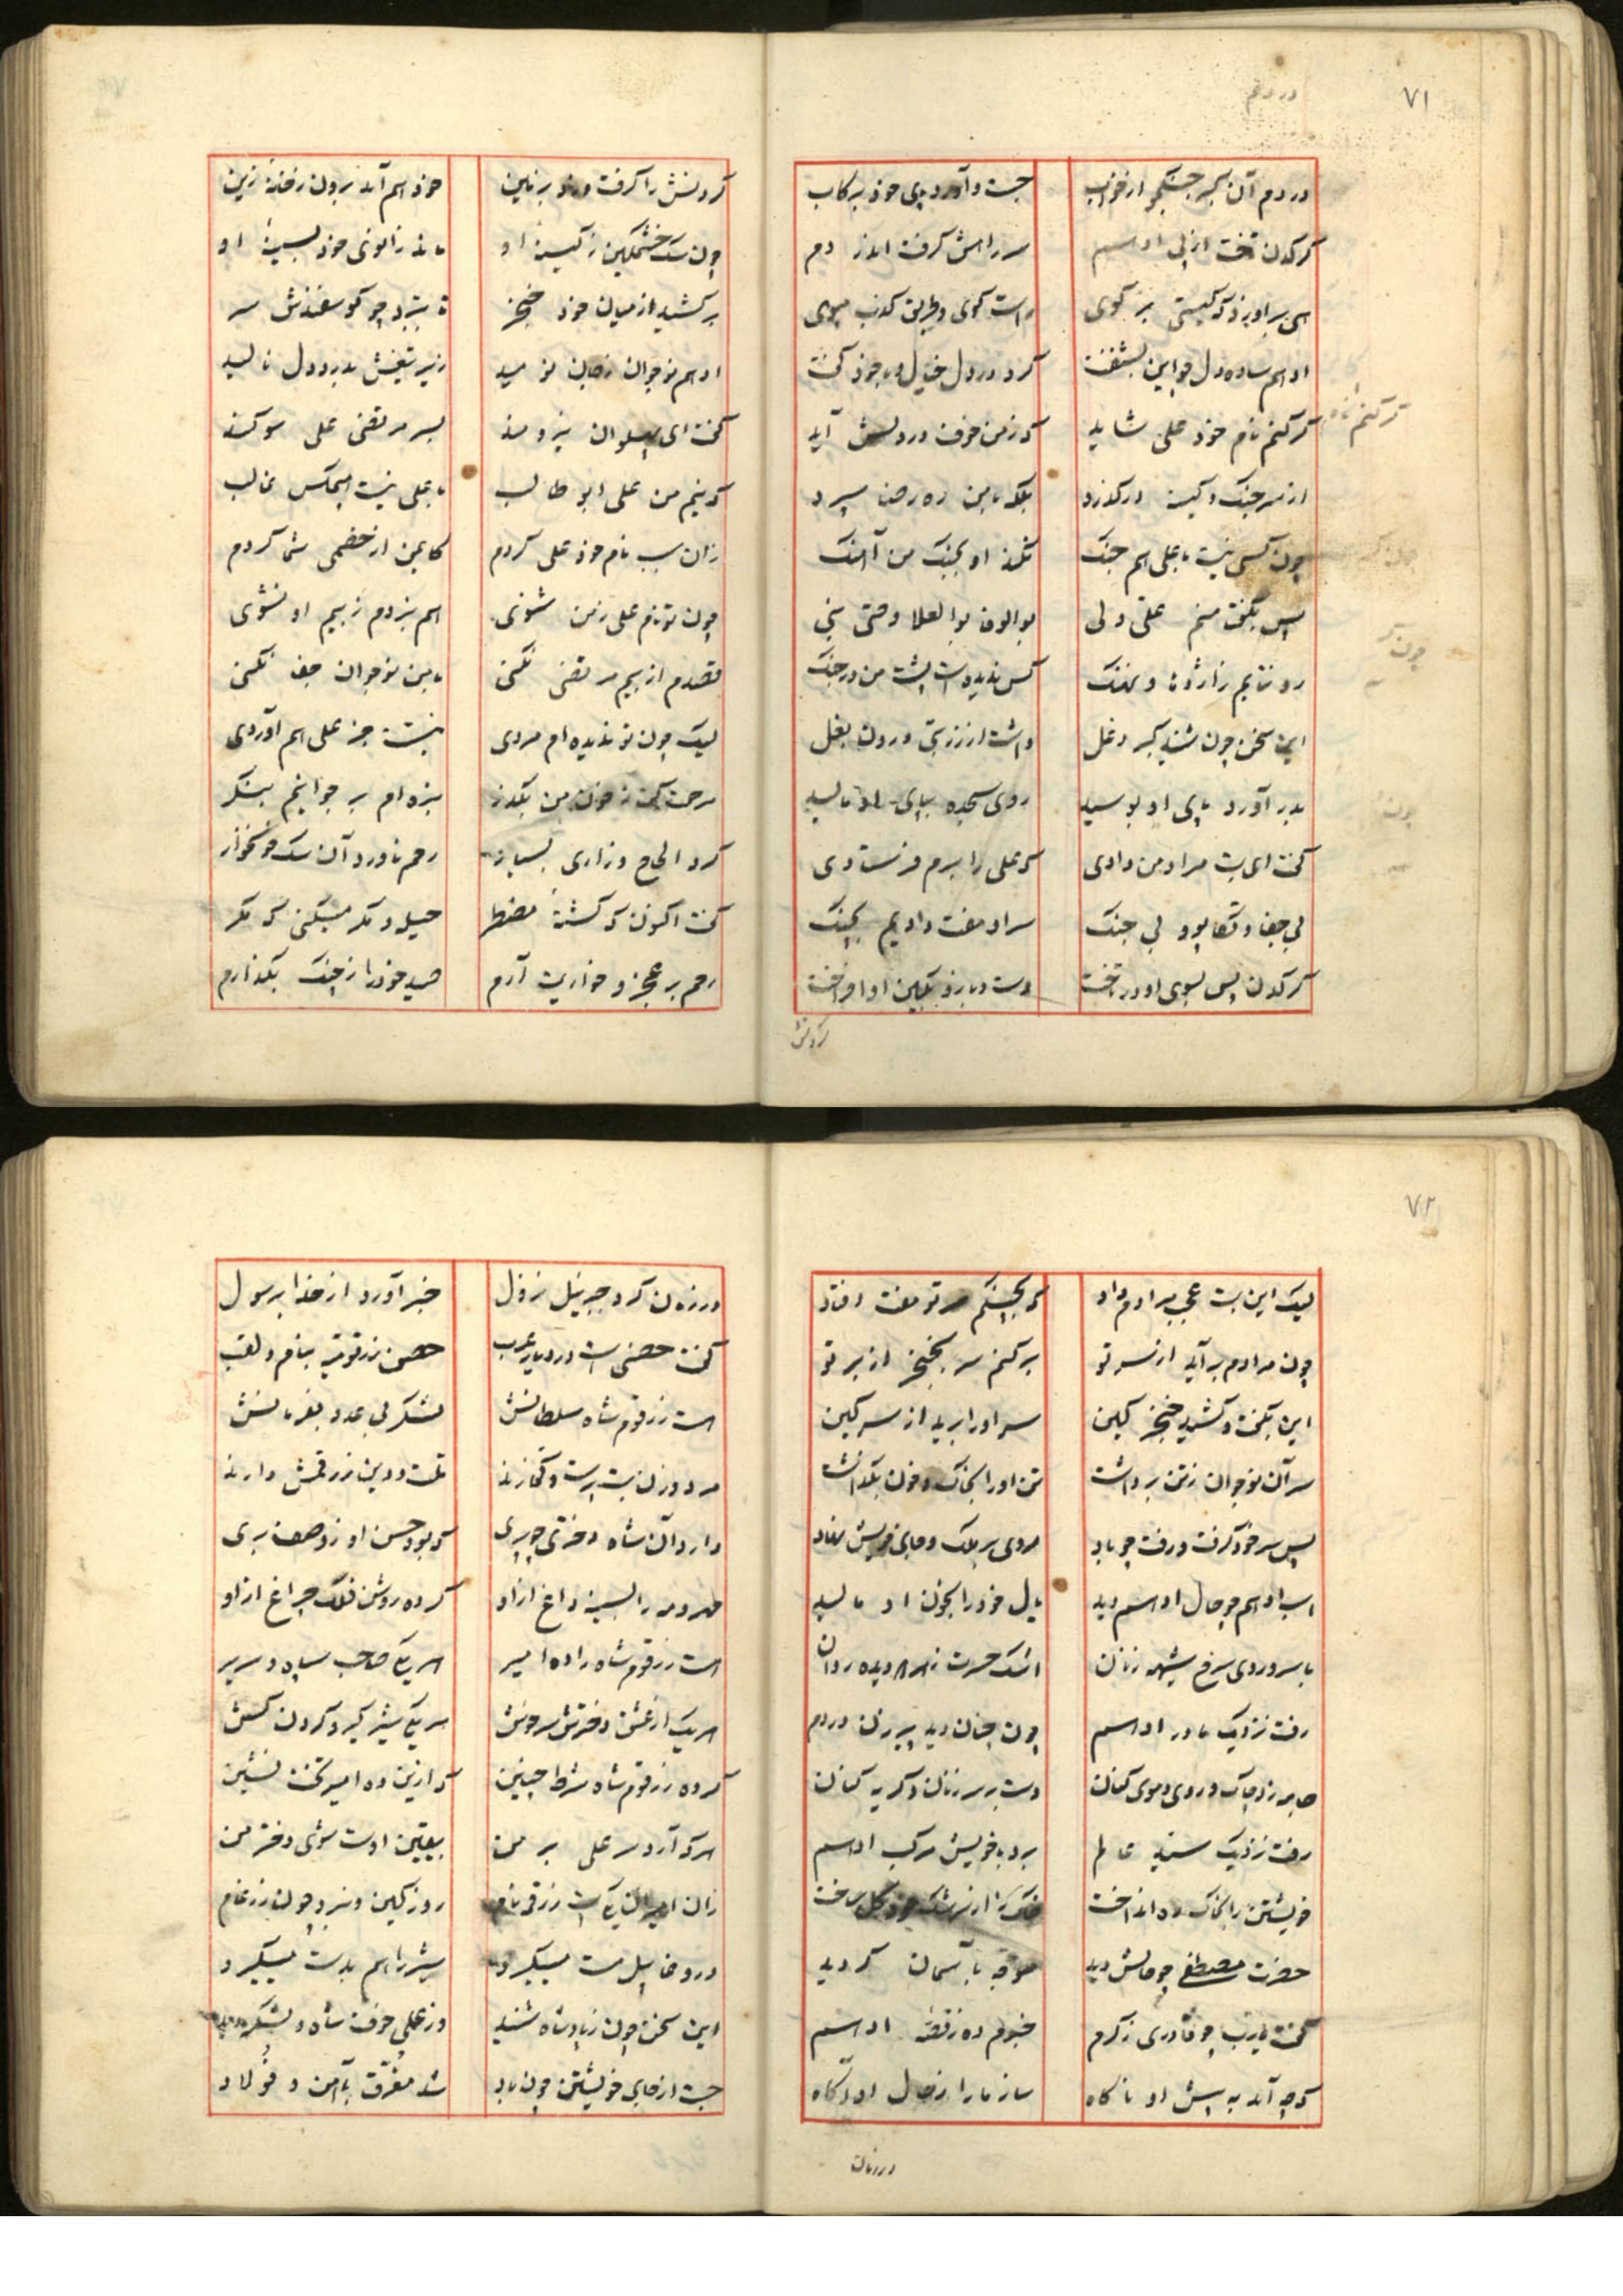 ۷۱
در دم آن گبر جنگجو از خواب جست و آورد پای خود برکاب
کرکدن تاخت از پی ادهم سر راهش گرفت اندر دم
هی بر او بر زد که کیستی برگوی راست گوی و طریق کذب مپوی
ادهم ساده دل چو این بشنفت کرد در دل خیال و با خود گفت
گر کنم نام خود علی شاید که ز من خوف در دلش آید
از سر جنگ و کینه درگذرد بلکه با من ره رضا سپرد
چون کسی نیست با علی هم جنگ نکند او بجنگ من آهنگ
پس بگفت منم علی ولی بوالوفا بوالعلا وصی نبی
رو نتابم ز اژدها و نهنگ کس ندیدست پشت من در جنگ
این سخن چون شنید گبر دغل داشت از زر بتی درون بغل
بدر آورد پای او بوسید روی سجده بپای او مالید
گفت ای بت مراد من دادی که علی را برم فرستادی
بی جفا و تکاپو و بی جنگ سر او مفت دادیم بچنگ
کرکدن پس بسوی او در تاخت دست و بازو بکین او افراخت
گردنش
گردنش را گرفت و زد بر زمین خود هم آمد برون ز خانه زین
چون سگ خشمگین ز کینه او ماند زانوی خود بسینه او
برکشید از میان خود خنجر تا ببرد چو گوسفندش سر
ادهم نوجوان ز جان نومید زیر تیغش بدرد دل نالید
گفت ای پهلوان نیرومند بسر مرتضی علی سوگند
که نیم من علی ابوطالب با علی نیست هیچکس غالب
زان سبب نام خود علی کردم کایمن از خصمی شما گردم
چون تو نام علی ز من شنوی هم نبردم ز بیم او نشوی
قصدم از بیم مرتضی نکنی با من نوجوان جفا نکنی
لیک چون تو ندیده ام مردی نیست جز علی هم آوردی
مرحمت کن ز خون من بگذر بنده ام بر جوانیم بنگر
کرد الحاح و زاری بسیار رحم ناورد آن سگ خونخوار
گفت اکنون که گشته مضطر حیله و مکر میکنی که مگر
رحم بر عجز و خواریت آرم صید خود را ز چنگ بگذارم
۷۲
لیک این بت عجب مرادم داد که بچنگم سر تو مفت افتاد
چون مرادم برآید از سر تو برکنم سر بخنجر از بر تو
این بگفت و کشید خنجر کین سر او را برید از سر کین
سر آن نوجوان ز تن برداشت تن او را بخاک و خون بگذاشت
پس سر خود گرفت و رفت چو باد
اسب ادهم چو حال ادهم دید یال خود را بخون او مالید
با سر و روی سرخ شیهه زنان اشک حسرت ز هر دو دیده روان
رفت نزدیک مادر ادهم چون چنان دید پیرزن در دم
جامه زد چاک و روی و موی کنان دست بر سر زنان و گریه کنان
رفت نزدیک سید عالم برد با خویش مرکب ادهم
خویشتن را بخاک ره انداخت
حضرت مصطفی چو حالش دید متوجه بآسمان گردید
گفت یارب چو قادری ز کرم خبرم ده ز قصه ادهم
که چه آمد به پیش او ناگاه ساز ما را ز حال او آگاه
در زمان
در زمان کرد جبرئیل نزول خبر آورد از خدا برسول
گفت حصنی است در دیار عرب حصن زرقومیه بنام و لقب
هست زرقوم شاه سلطانش لشکر بی عدد بفرمانش
مرد و زن بت پرست و کفارند ملت و دین زردقمش دارند
دارد آن شاه دختری چو پری که بود حسن او ز وصف بری
مهر و مه را بسینه داغ از او کرده روشن فلک چراغ از او
هست زرقوم شاه را ده امیر هر یکی صاحب سپاه و سریر
هر یک از عشق دخترش سرخوش هر یکی شیرگیر و گردن کش
کرده زرقوم شاه شرط چنین که ازین ده امیر تخت نشین
هر که آرد سر علی بر من بیقین اوست شوی دختر من
روز کین و نبرد چون ضرغام
در وغا پیل مست میگیرد شیر را هم بدست میگیرد
این سخن چون ز پادشاه شنید
جست از جای خویشتن چون باد شد مغرق بآهن و فولاد